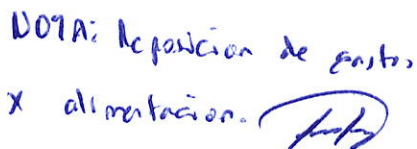 NOTA: Reposicion de gastos
x alimentacion.